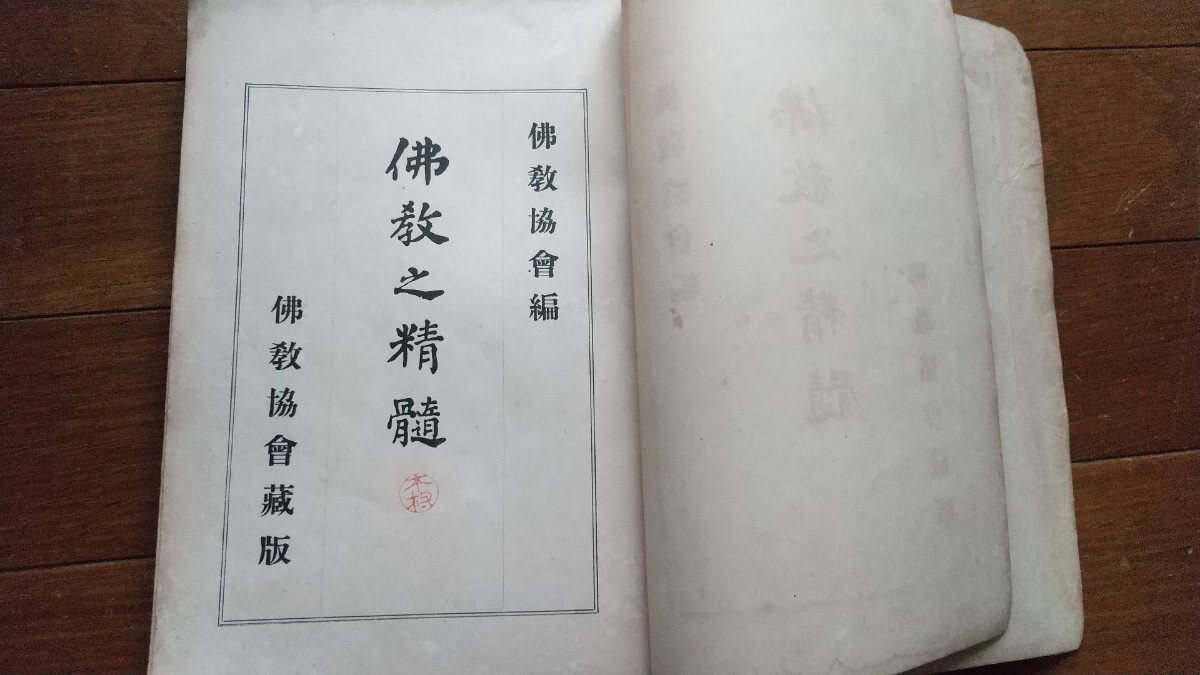 佛敎協會編
佛敎之精髓
佛敎協會藏版